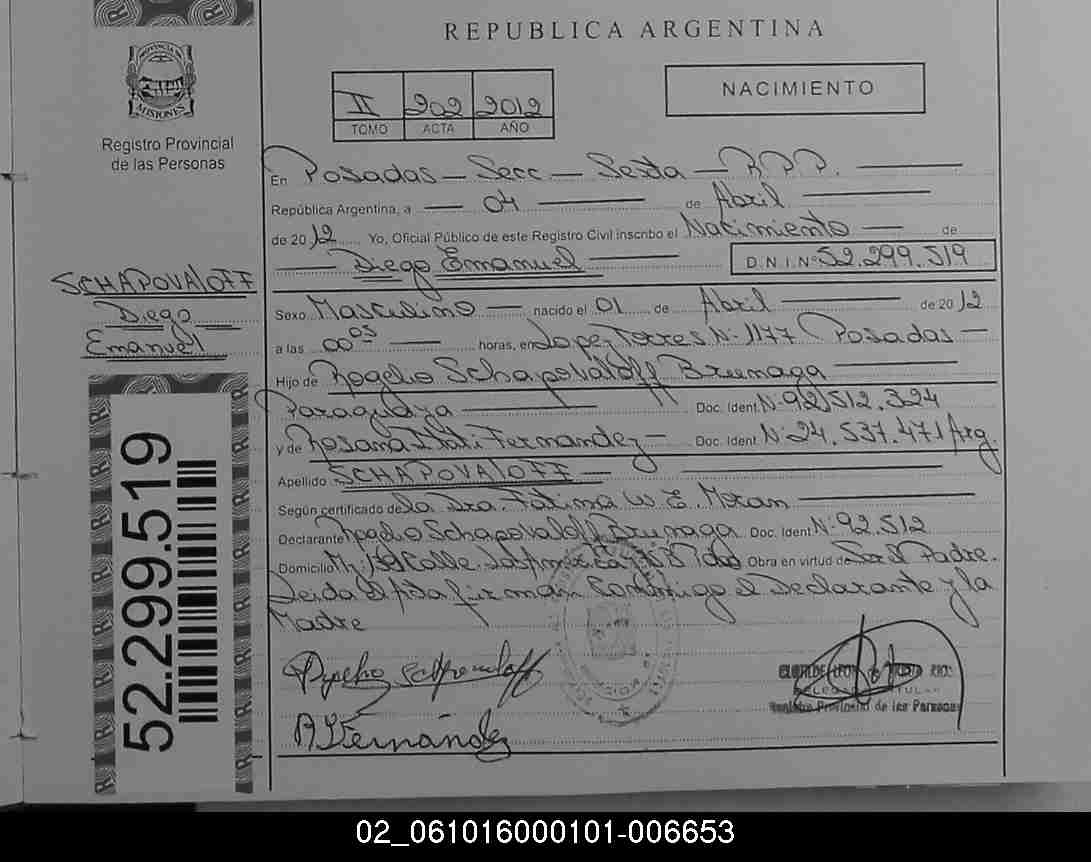 REPUBLICA ARGENTINA
PROVINCIA DE
MISIONES
Registro Provincial
de las Personas
II 202 2012
TOMO ACTA AÑO
NACIMIENTO
En Posadas — Secc — Sexta — R.P.P.
República Argentina, a — 04 — de Abril
de 2012 Yo, Oficial Público de este Registro Civil inscribo el Nacimiento — de
— Diego Emanuel — D.N.I. Nº 52.299.519
SCHAPOVALOFF
Diego
Emanuel
Sexo Masculino — nacido el 01 de Abril — de 2012
a las 00 05 — horas, en Lopez Torres Nº 1177 Posadas —
Hijo de Rogelio Schapovaloff Brunaga
Paraguaya — Doc. Ident. Nº 92.512.324
y de Rosana Itati Fernandez — Doc. Ident. Nº 24.537.471 Arg.
Apellido SCHAPOVALOFF —
Según certificado de la Dra. Fatima W. E. Moran
Declarante Rogelio Schapovaloff Brunaga Doc. Ident. Nº 92.512
Domicilio Calle Obra en virtud de Ser el Padre.
Leida el Acta firman Conmigo el Declarante y la
Madre
52.299.519
Fernández
Registro Provincial de las Personas
02_061016000101-006653